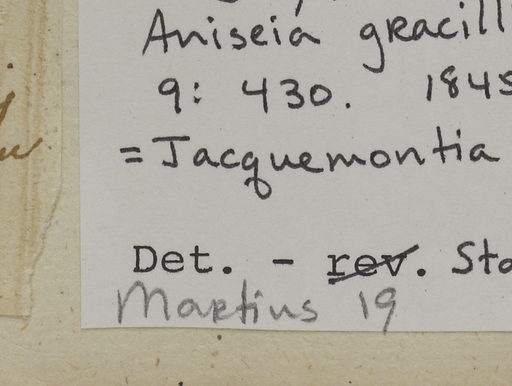 Aniseia gracill
9: 430. 1845
= Jacquemontia
Det. - rev. Sta
Martius 19